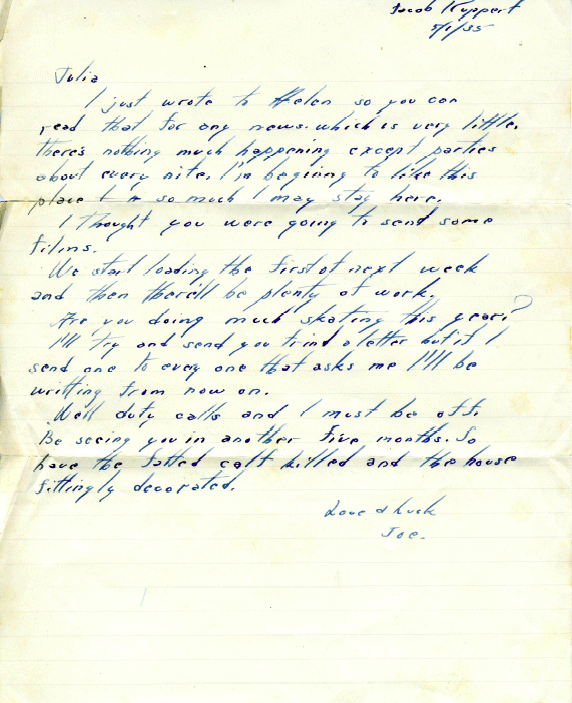 Jacob Ruppert
5/1/35
Julia
I just wrote to Helen so you can
read that for any news. which is very little.
There's nothing much happening except parties
about every nite. I'm begining to like this
place so much I may stay here.
I thought you were going to send some
films.
We start loading the first of next week
and then there'll be plenty of work.
Are you doing much skating this year?
I'll try and send you a letter but if I
send one to every one that asks me I'll be
writting from now on.
Well duty calls and I must be off.
Be seeing you in another five months. So
have the fatted calf killed and the house
fittingly decorated.
Love & Luck
Joe.